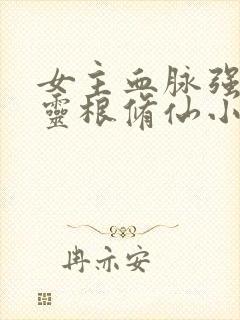 女主血脉强
靈根脩仙小
冉亦安